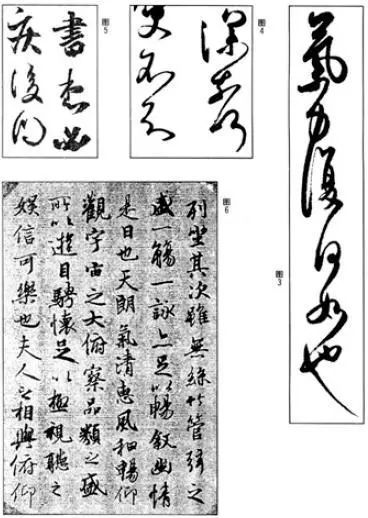 图5
图4
氣力復何如也
图3
图6
列坐其次雖無絲竹管弦之
盛一觴一詠亦足以暢叙幽情
是日也天朗氣清惠風和暢仰
觀宇宙之大俯察品類之盛
所以遊目騁懷足以極視聽之
娛信可樂也夫人之相與俯仰